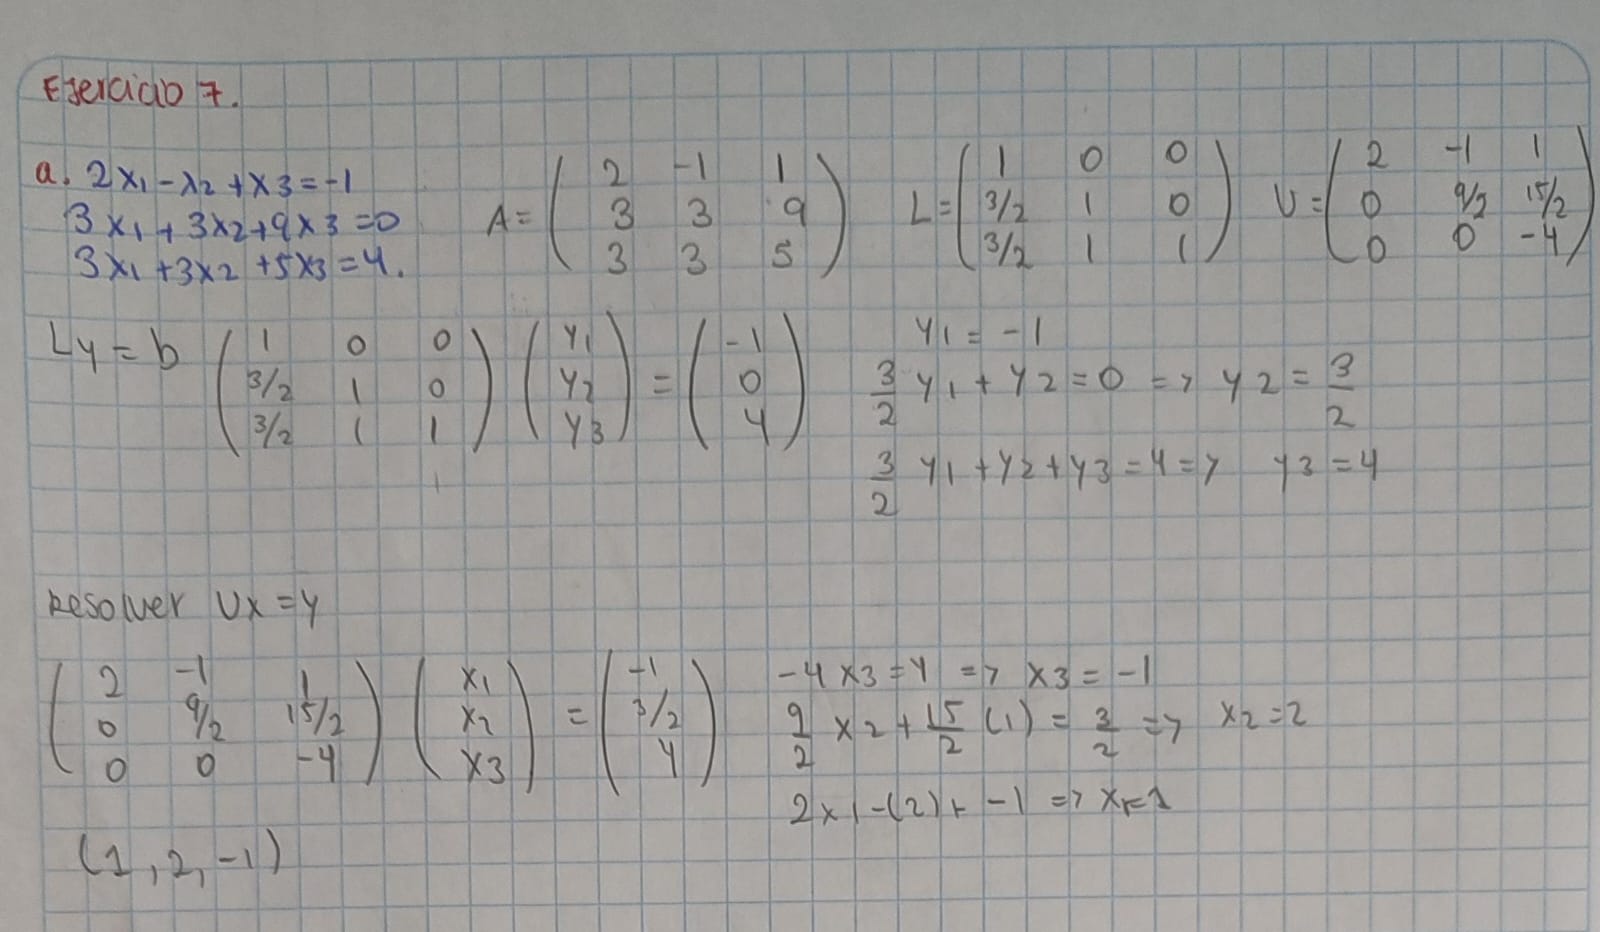 Ejercicio 7.
a. 2x1 - x2 + x3 = -1
3x1 + 3x2 + 9x3 = 0
3x1 + 3x2 + 5x3 = 4.
A = ( 2 -1 1
3 3 9
3 3 5 )
L = ( 1 0 0
3/2 1 0
3/2 1 1 )
U = ( 2 -1 1
0 9/2 15/2
0 0 -4 )
Ly = b ( 1 0 0
3/2 1 0
3/2 1 1 )
( y1
y2
y3 )
= ( -1
0
4 )
y1 = -1
3/2 y1 + y2 = 0 => y2 = 3/2
3/2 y1 + y2 + y3 = 4 => y3 = 4
Resolver Ux = y
( 2 -1 1
0 9/2 15/2
0 0 -4 )
( x1
x2
x3 )
= ( -1
3/2
4 )
-4x3 = 4 => x3 = -1
9/2 x2 + 15/2 (1) = 3/2 => x2 = 2
2x1 - (2) + -1 => x1 = 1
(1, 2, -1)